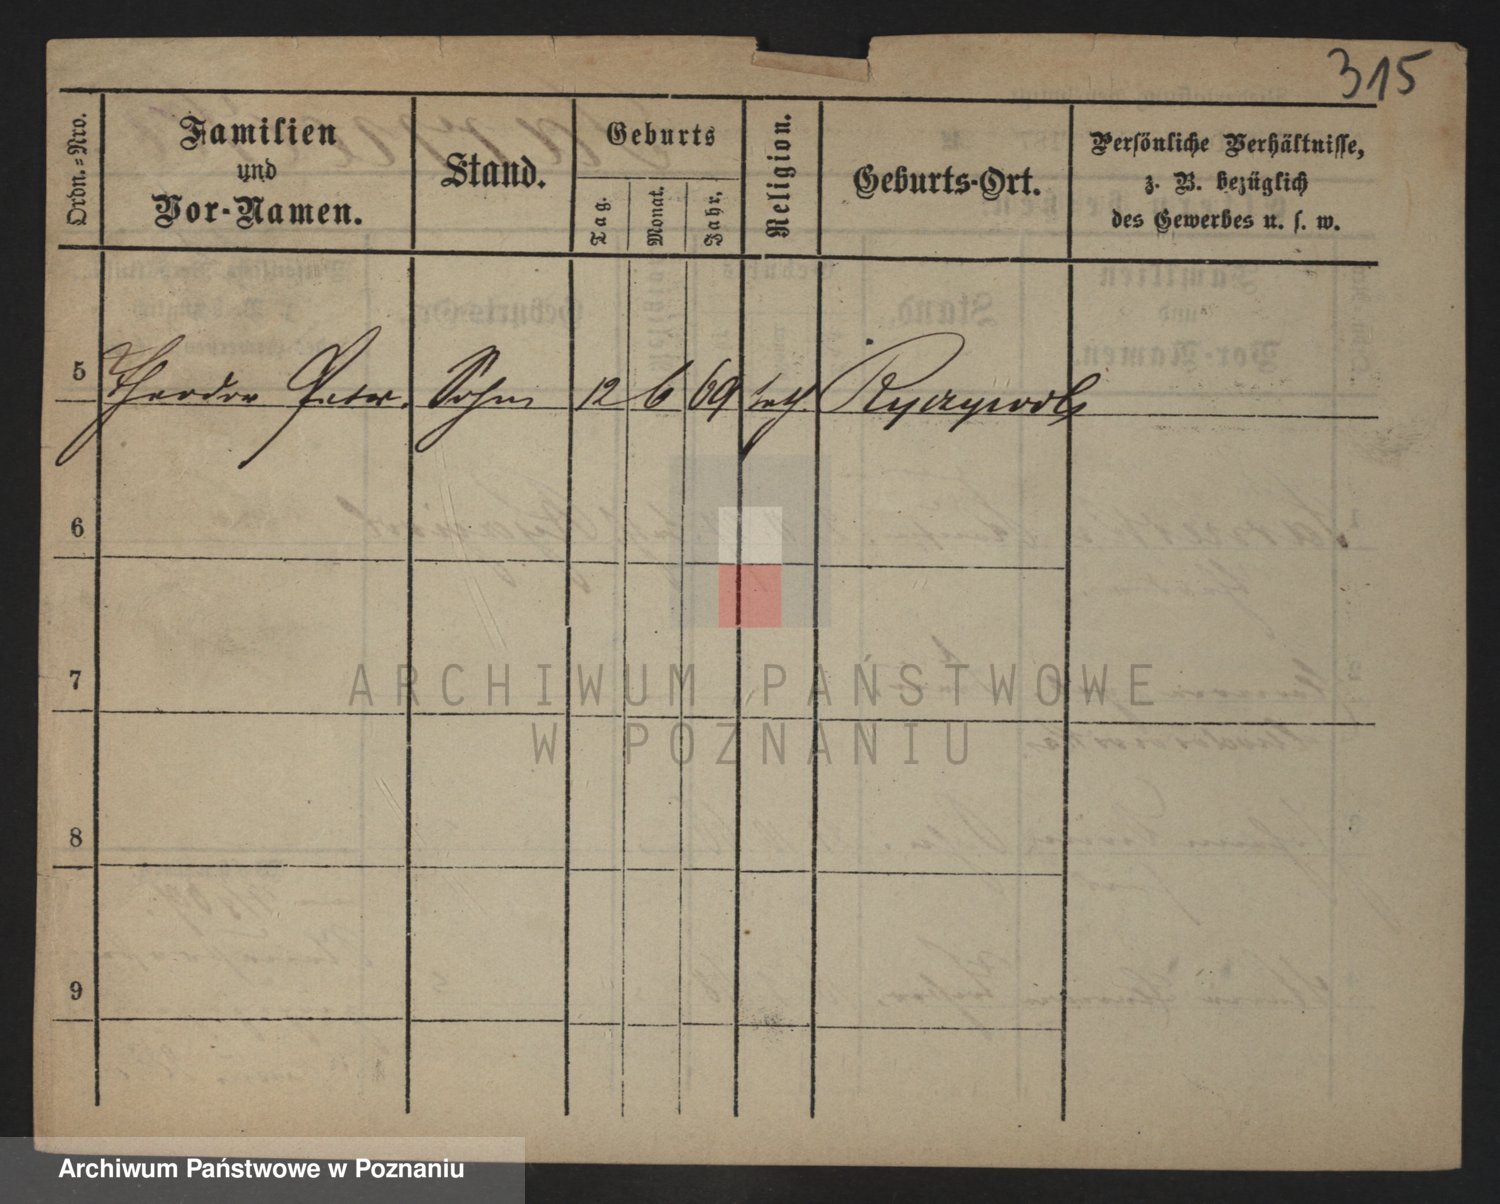 315
Ordn.-Nro.
Familien
und
Vor-Namen.
Stand.
Geburts
Tag.
Monat.
Jahr,
Religion.
Geburts-Ort.
Persönliche Verhältnisse,
z. B. bezüglich
des Gewerbes u. s. w.
5 Theodor Peter. Sohn 12 6 69 kath.
6
7
8
9
ARCHIWUM PAŃSTWOWE
W POZNANIU
Archiwum Państwowe w Poznaniu